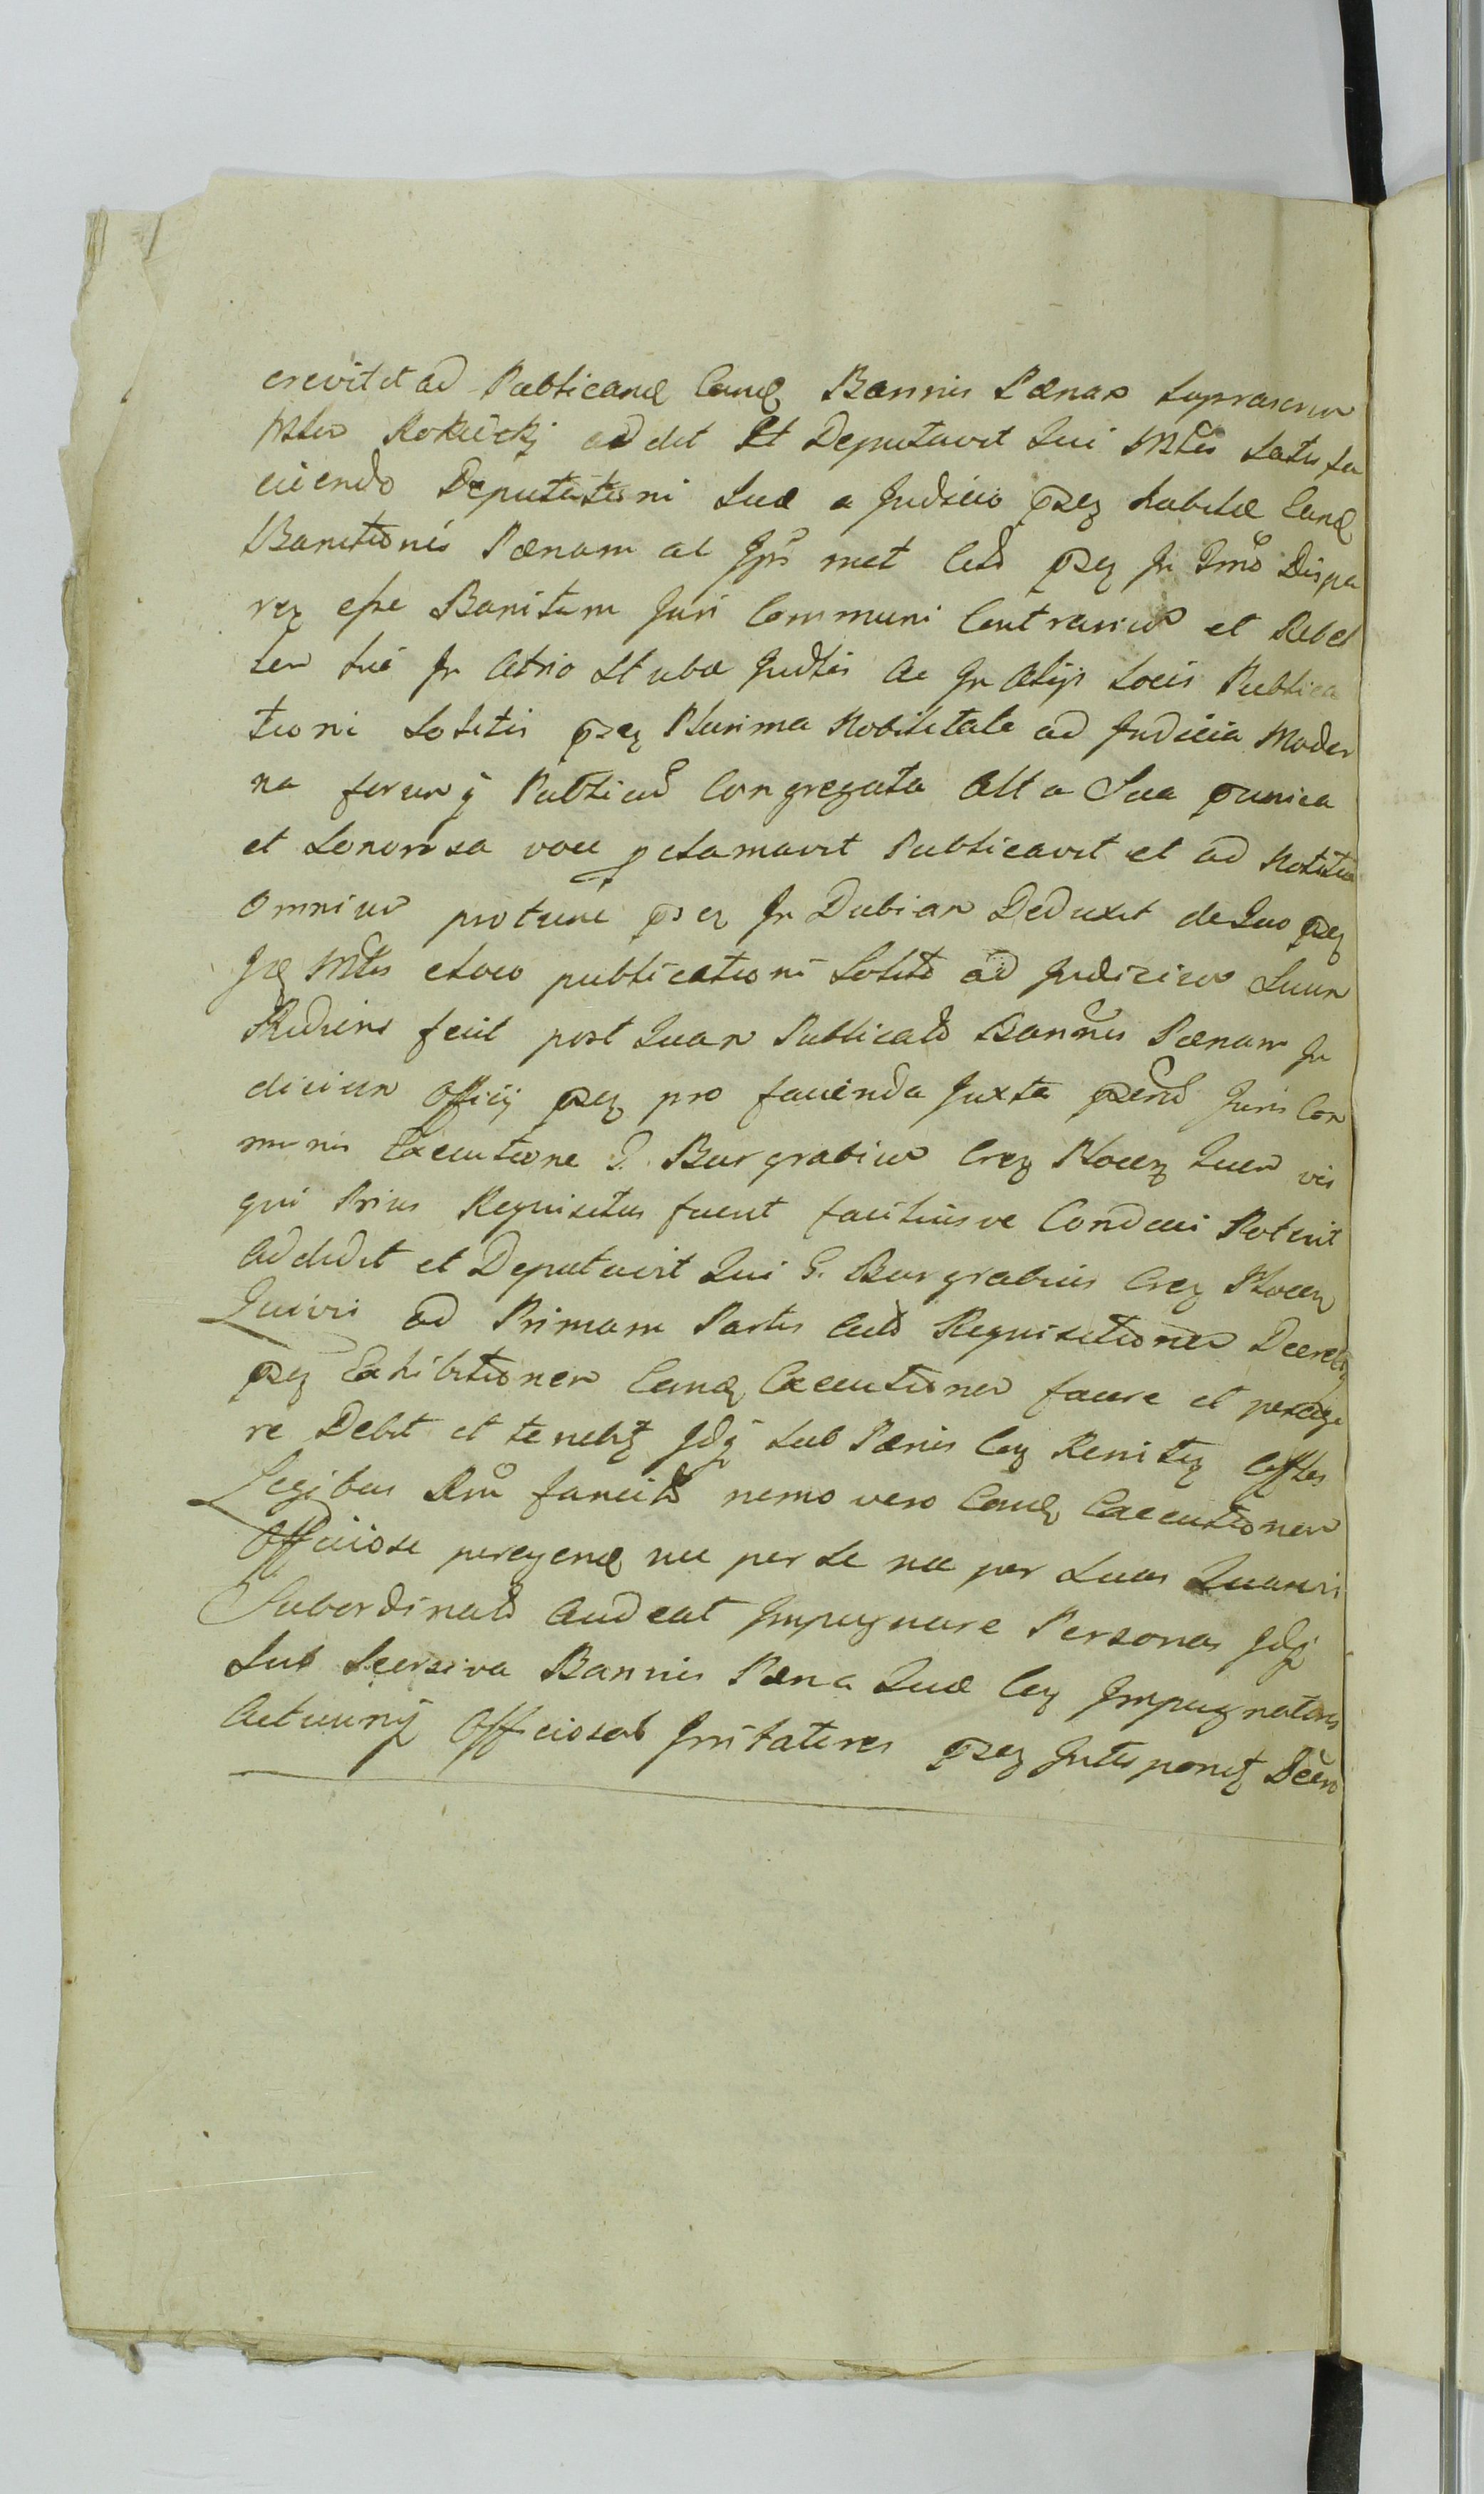 crevit et ad Publicand Eand Bannis Pænam suprascrm
Mlem Rokicki addit Et Deputavit Qui Mles Satisfa
ciendo Deputationi Suæ a Judicio psq habitæ Eand
Banitionis Pænam ac Ips met Citd psq In Tmo Dispa
req esse Banitum Juri Communi Contrarium et Rebel
lem sui In Atrio Stubæ Judlis Ac In Alijs Locis Publica
tioni Solitis psq Plurima Nobilitate ad Judicia Moder
na forumq Publicum Congregata Alta Sua punica
et Sonorosa voce pclamavit Publicavit et ad Notitia
Omnium protunc psq In Dubiam Deduxit de Quo psq
Idq Mles e Loco publicationi Solito ad Judicium Suum
Rediens fecit post Quam Publicatd Bannis Pænam Ju
dicium Officij psq pro facienda Juxta psend Juris Com
munis Executione G. Burgrabium Crq Plocen Quem vis
qui Prius Requisitus fuerit faciliusve Conduci Poterit
Addidit et Deputavit Qui G. Burgrabius Crq Plocen
Quivis ad Primam Partis Actd Requisitionem Decreti
psq Exhibitionem Eand Executionem facere et perage
re Debit et tenebt Idq Sub Pænis Cog Renitq Offles
Legibus Rni sancitd nemo vero Eand Executionem
Officiose peragend nec per se nec per Suas Quasvis
Subordinatd Audeat Impugnare Personas Idq
Sub Secrsiva Bannis Pæna Quæ Cog Impugnatores
Actuumq Officiosod Irritatores psq Interponet Decro